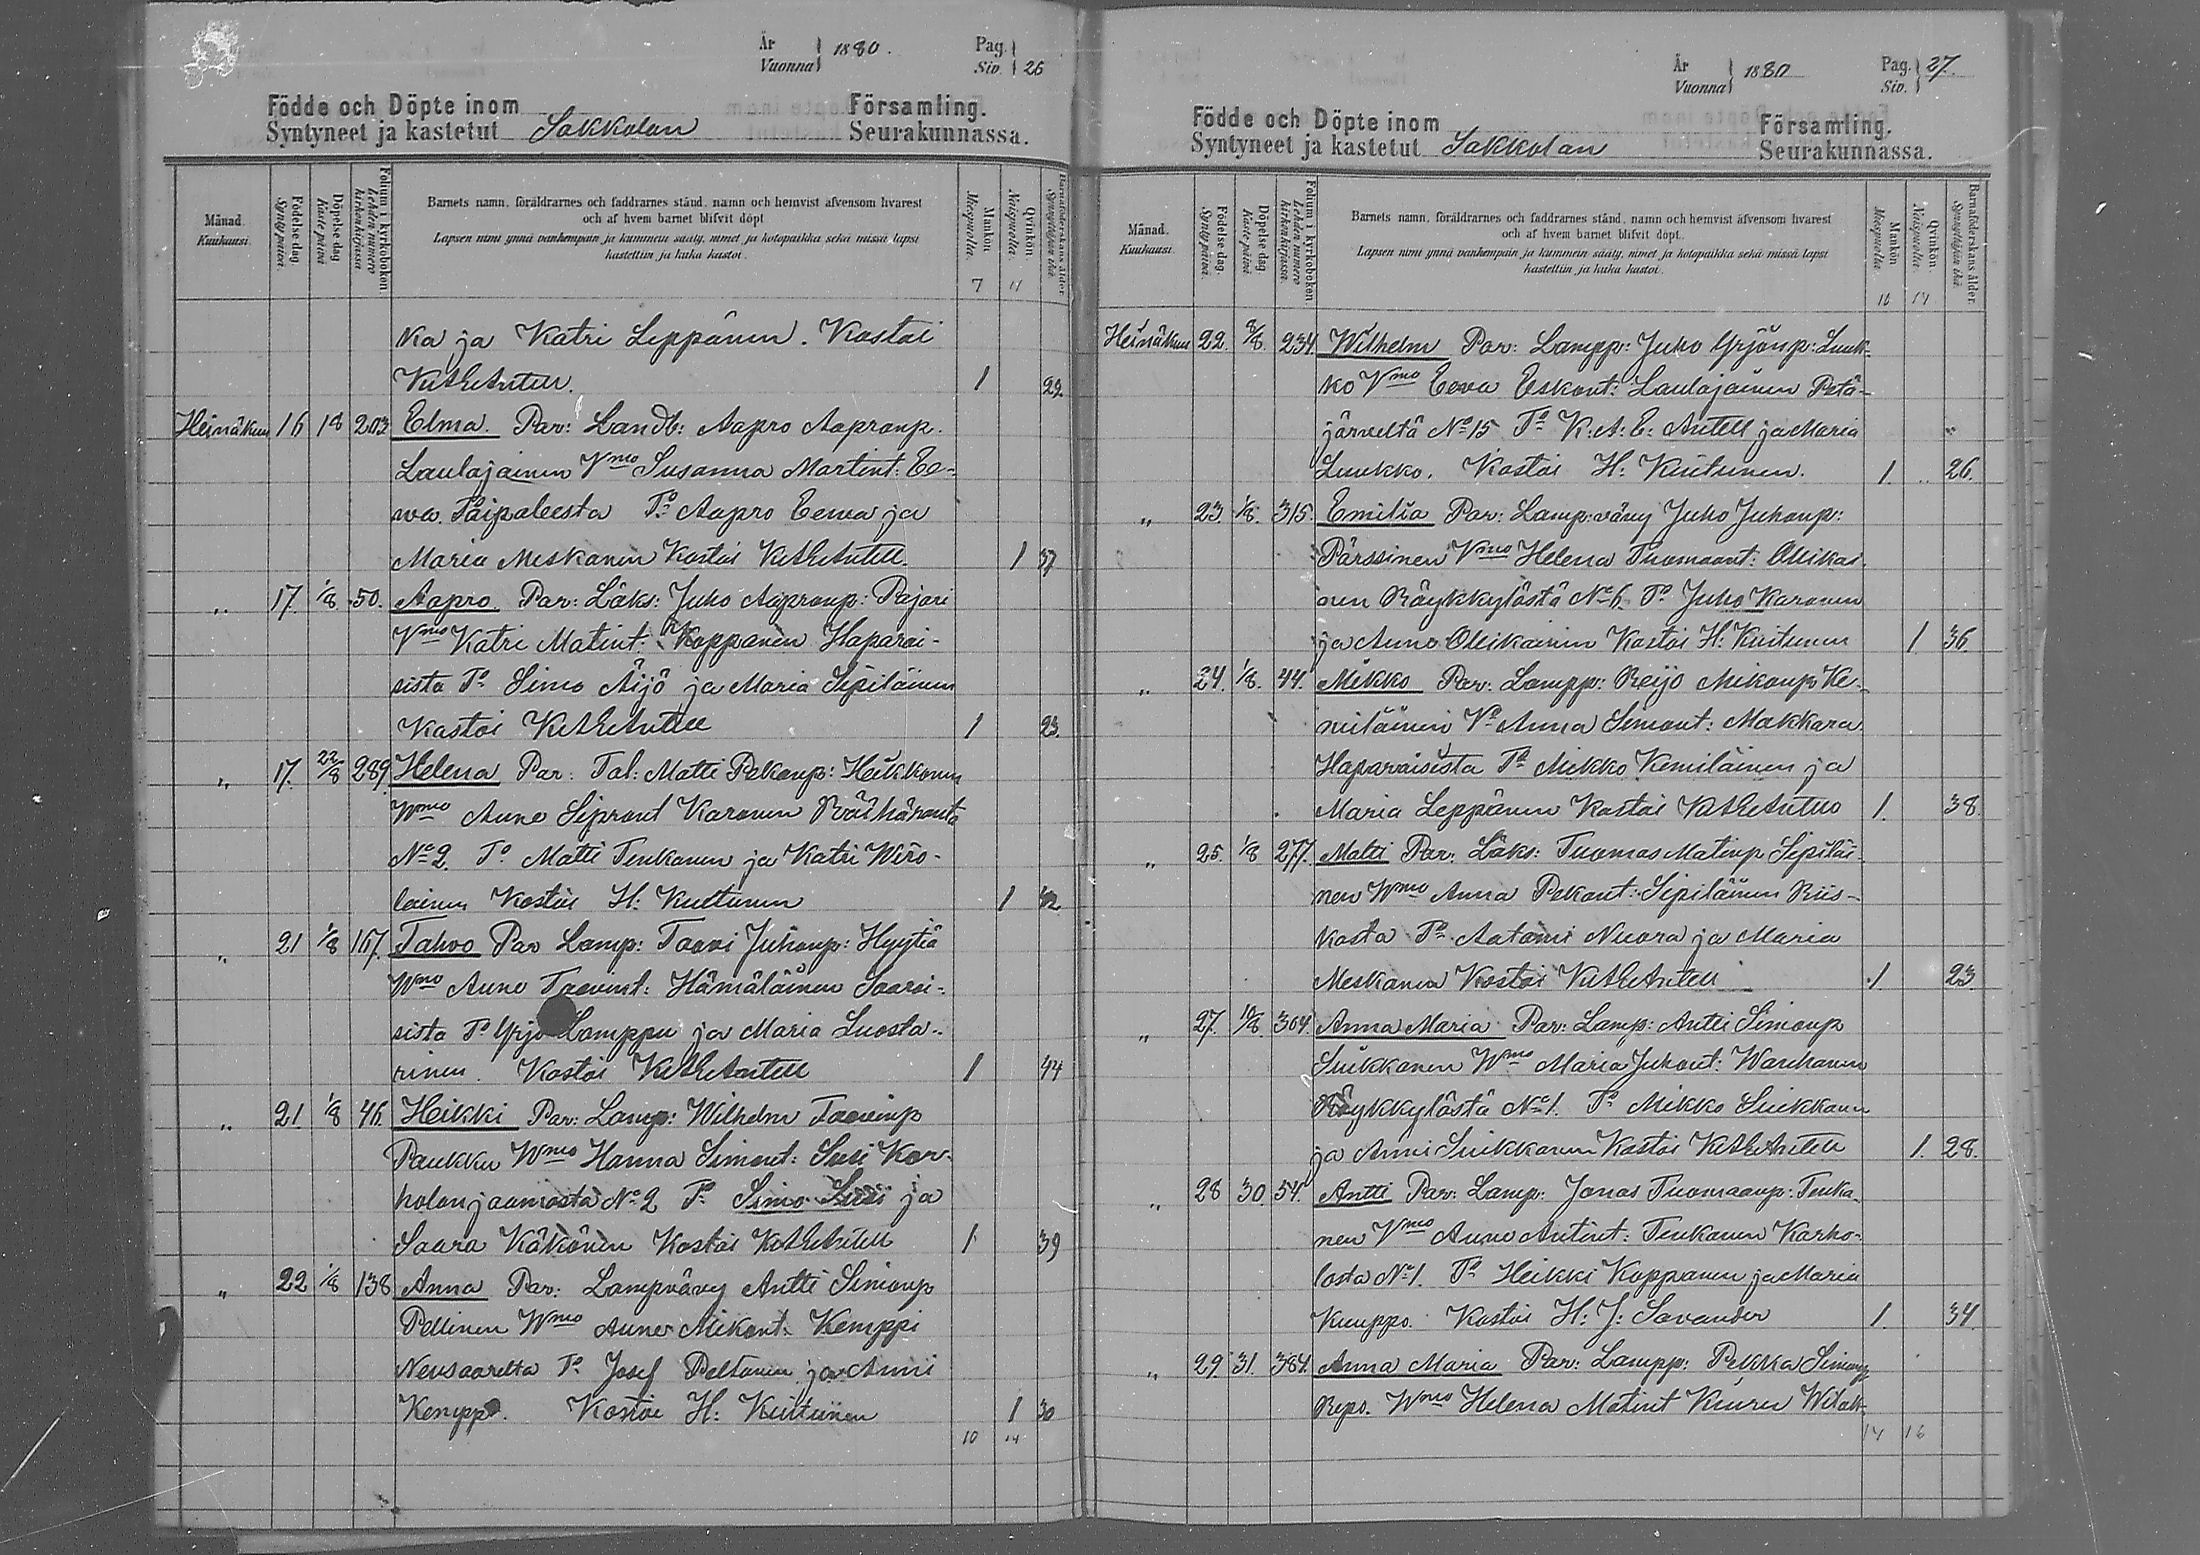 År Vuonna 1880. Pag. Siv. 26
Födde och Döpte inom Församling.
Syntyneet ja kastetut Sakkolan Seurakunnassa.
Månad. Kuukausi.
Födelse dag Syntypäivä
Döpelse dag Kastepäivä
Folium i kyrkoboken Lehden numero kirkonkirjassa
Barnets namn, föräldrarnes och faddrarnes stånd, namn och hemvist äfvensom hvarest
och af hvem barnet blifvit döpt
Lapsen nimi ynnä vanhempain ja kummein sääty, nimet ja kotopaikka sekä missä lapsi
kastettiin ja kuka kastoi.
Mankön Miespuolta.
Qvinkön Naispuolta.
Barnaföderskans ålder Synnyttäjän ikä.
7 11
ka ja Katri Leppänen. Kastoi
K:A:E:Antell. 1 22.
Heinäkuu 16 18 203 Elma. Van: Landb: Aapro Aapronp.
Laulajainen Vmo Susanna Martint: Ee-
wa Taipaleesta To Aapro Eewa ja
Maria Meskanen Kastoi K:A:E:Antell. 1 37
" 17. 1/8. 50. Aapro Van: Läks: Juho Aapronp: Pajari
Vmo Katri Matint: Koppanen Haparai-
sista To Simo Äijö ja Maria Sipiläinen
Kastoi K:A:E:Antell 1 23.
" 17. 22/8 289. Helena Van: Tal: Matti Pekanp: Heikkonen
Wmo Anna Siprant Karonen Räihäranta
No 2. To Matti Tenkanen ja Katri Wiro-
lainen Kastoi H: Kiiltunen 1 42
" 21 1/8 167. Tahvo Van Lamp: Taavi Juhanp: Hyytiä
Wmo Anna Taavint: Hämäläinen Saaroi-
sista To Yrjö Lamppu ja Maria Luosta-
rinen. Kastoi K:A:E:Antell 1 44
" 21. 1/8 46. Heikki Van: Lamp: Wilhelm Taavinp
Paukku Wmo Hanna Simont: Susi Kar-
holanjaamasta No 2 To Simo Susi ja
Saara Käkönen Kastoi K:A:E:Antell 1 39
" 22 1/8 138 Anna Van: Lampvävy Antti Simonp
Pellinen Wmo Anna Mikont. Kemppi
Neusaarelta To Josef Peltonen ja Anni
Kemppi. Kastoi H: Kiitunen 1 30
10 14
År Vuonna 1880 Pag. Siv. 27.
Födde och Döpte inom Församling.
Syntyneet ja kastetut Sakkolan Seurakunnassa.
Månad. Kuukausi.
Födelse dag Syntypäivä
Döpelse dag Kastepäivä
Folium i kyrkoboken Lehden numero kirkonkirjassa.
Barnets namn, föräldrarnes och faddrarnes stånd, namn och hemvist äfvensom hvarest
och af hvem barnet blifvit döpt.
Lapsen nimi ynnä vanhempain ja kummein sääty, nimet ja kotopaikka sekä missä lapsi
kastettiin ja kuka kastoi.
Mankön Miespuolta.
Qvinkön Naispuolta.
Barnaföderskans ålder Synnyttäjän ikä.
10 14
Heinäkuu 22. 8/8. 234. Wilhelm Van: Lampp: Juho Yrjönp: Luuk-
ko Vmo Eeva Eskont: Laulajainen Petä-
järveltä No 15 To K:A:E: Antell ja Maria
Luukko. Kastoi H: Kiitunen. 1. 26.
" 23. 1/8. 315. Emilia Van: Lamp:vävy Juho Juhanp:
Pärssinen Vmo Helena Tuomaant: Ollikai
nen Röykkylästä No 6 To Juho Karonen
ja Anna Ollikainen Kastoi H: Kiitunen 1 36.
" 24. 1/8. 44. Mikko Van: Lampp: Reijo Mikonp Ke-
miläinen Vo Anna Simont: Makkara
Haparaisista To Mikko Kemiläinen ja
Maria Leppänen Kastoi K:A:E:Antell 1. 38.
" 25. 1/8 277. Matti Van: Läks: Tuomas Matinp Sipiläi
nen Wmo Anna Pekant: Sipiläinen Riis-
kasta To Aatami Nuora ja Maria
Meskanen Kastoi K:A:E:Antell 1 23.
" 27. 10/8. 304. Anna Maria Van: Lamp: Antti Simonp
Suikkanen Wmo Maria Juhont: Wanhanen
Röykkylästä No 1. To Mikko Suikkanen
ja Anni Suikkanen Kastoi K:A:E:Antell 1. 28.
" 28 30. 54. Antti Van: Lamp: Jonas Tuomaanp: Tenka
nen Vmo Anna Antint: Tenkanen Karho-
lasta No 1. To Heikki Koppanen ja Maria
Kuuppo. Kastoi H: J: Savander 1. 34.
" 29. 31. 384. Anna Maria Van: Lampp: Pekka Simonp
Repo. Wmo Helena Matint Kiuru Witak-
14 16